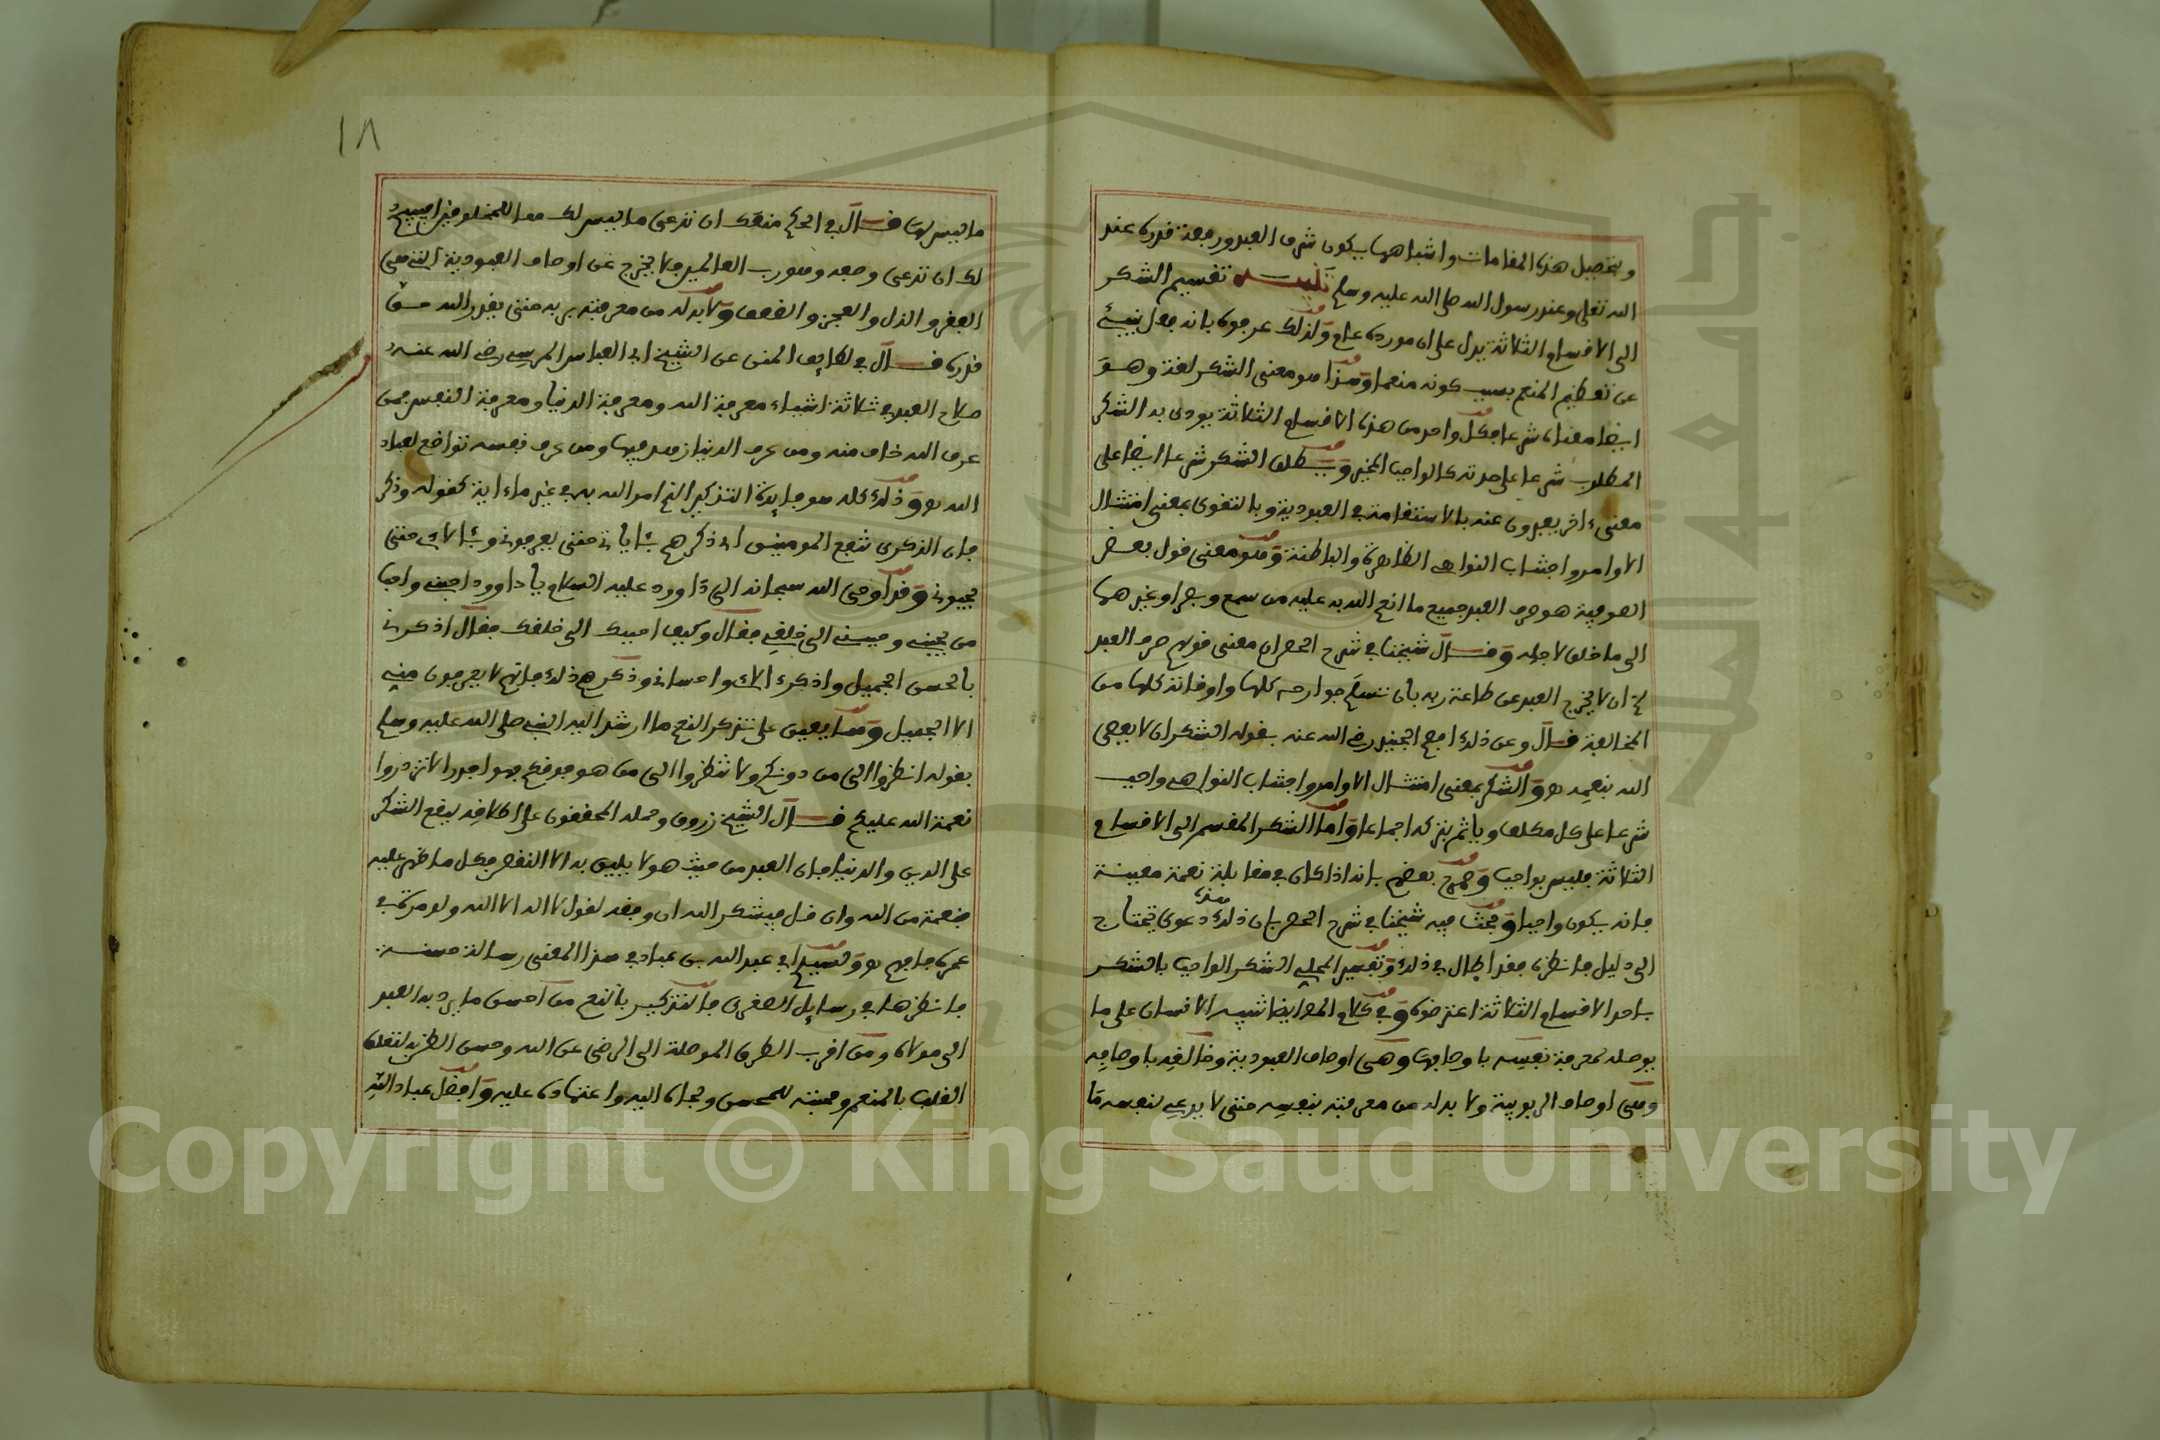 وبتحصيل هذه المقامات واشباهها يكون شرف العبد ورفعة قدره عند
الله تعلى وعند رسول الله صلى الله عليه وسلم تنبيه تقسيم الشكر
الى الاقسام الثلاثة يدل على ان مورده عام ولذلك عرفوه بانه فعل ينبئ
عن تعظيم المنعم بسبب كونه منعما وهذا هو معنى الشكر لغة وهو
ايضا معناه شرعا فكل واحد من هذه الاقسام الثلاثة يودى به الشكر
المطلوب شرعا على حدته كالواجب المخير ويطلق الشكر شرعا ايضا على
معنى ءاخر يعبرون عنه بالاستقامة في العبودية وبالتقوى بمعنى امتثال
الاوامر واجتناب النواهي الظاهرة والباطنة وهو معنى قول بعض
الصوفية هو صرف العبد جميع ما انعم الله به عليه من سمع وبصر او غيرهما
الى ما خلق لاجله وقال شيخنا في شرح الحصر ان معنى قولهم صرف العبد
الخ ان لا يخرج العبد عن طاعة ربه بان تسلم جوارحه كلها واوقاته كلها من
المخالفة قال وعن ذلك افصح الجنيد رضي الله عنه بقوله الشكر ان لا يعصى
الله بنعمه والشكر بمعنى امتثال الاوامر واجتناب النواهي واجب
شرعا على كل مكلف وياثم بتركه اجماعا واما الشكر المقسم الى الاقسام
الثلاثة فليس بواجب وصرح بعضهم بانه اذا كان في مقابلة نعمة معينة
فانه يكون واجبا وبحث فيه شيخنا في شرح الحصر بان ذلك دعوى تحتاج
الى دليل فانظره فقد اطال في ذلك وتفسير المحلي الشكر الواجب بالشكر
باحد الاقسام الثلاثة اعترضوه وفي كلام المص ايضا تنبيه الانسان على ما
يوصله لمعرفة نفسه باوصافها وهي اوصاف العبودية وخالقه باوصافه
وهي اوصاف الربوبية ولا بد له من معرفته بنفسه حتى لا يدعي لنفسه ما
١٨
ما ليس لها قال في الحكم منعك ان تدعي ما ليس لك مما للمخلوقين افيبيح
لك ان تدعي وصفه وهو رب العالمين فلا يخرج عن اوصاف العبودية التي هي
الفقر والذل والعجز والضعف ولا بد له من معرفته بربه حتى يقدر الله حق
قدره قال في لطايف المنن عن الشيخ ابي العباس المرسي رضي الله عنه
صلاح العبد في ثلاثة اشياء معرفة الله ومعرفة الدنيا ومعرفة النفس فمن
عرف الله خاف منه ومن عرف الدنيا زهد فيها ومن عرف نفسه تواضع لعباد
الله وذلك كله هو فايدة التذكير الذي امر الله به في غير ما ءاية كقوله وذكر
فان الذكرى تنفع المومنين اي ذكرهم بئاياتي حتى يعرفوني وبئالائي حتى
يحبوني وقد اوحى الله سبحانه الى داوود عليه السلام يا داوود احبني واحب
من يحبني وحببني الى خلقي فقال وكيف احببك الى خلقك فقال اذكرني
بالحسن الجميل واذكر ءالائي واحساني وذكرهم ذلك فانهم لا يعرفون مني
الا الجميل ومما يعين على تذكر النعم ما ارشد اليه النبي صلى الله عليه وسلم
بقوله انظروا الى من دونكم ولا تنظروا الى من هو فوقكم فهو اجدر الا تزدروا
نعمة الله عليكم قال الشيخ زروق وحمله المحققون على اطلاقه ليقع الشكر
على الدين والدنيا فان العبد من حيث هو لا يليق به الا النقص فكل ما ظهر عليه
فنعمة من الله وان قل فيشكر الله ان وفقه لقول لا اله الا الله ولو مرة في
عمره فافهم ولسيدي ابي عبد الله بن عباد في هذا المعنى رسالة حسنة
فانظرها في رسايل الصغرى فالتذكير بالنعم من احسن ما يرد به العبد
الى مولاه ومن اقرب الطرق الموصلة الى الرضى عن الله وحسن الظن به لتعلق
القلب بالمنعم ومحبته للمحسن ولجاه اليه واعتماده عليه وافضل عباد الله